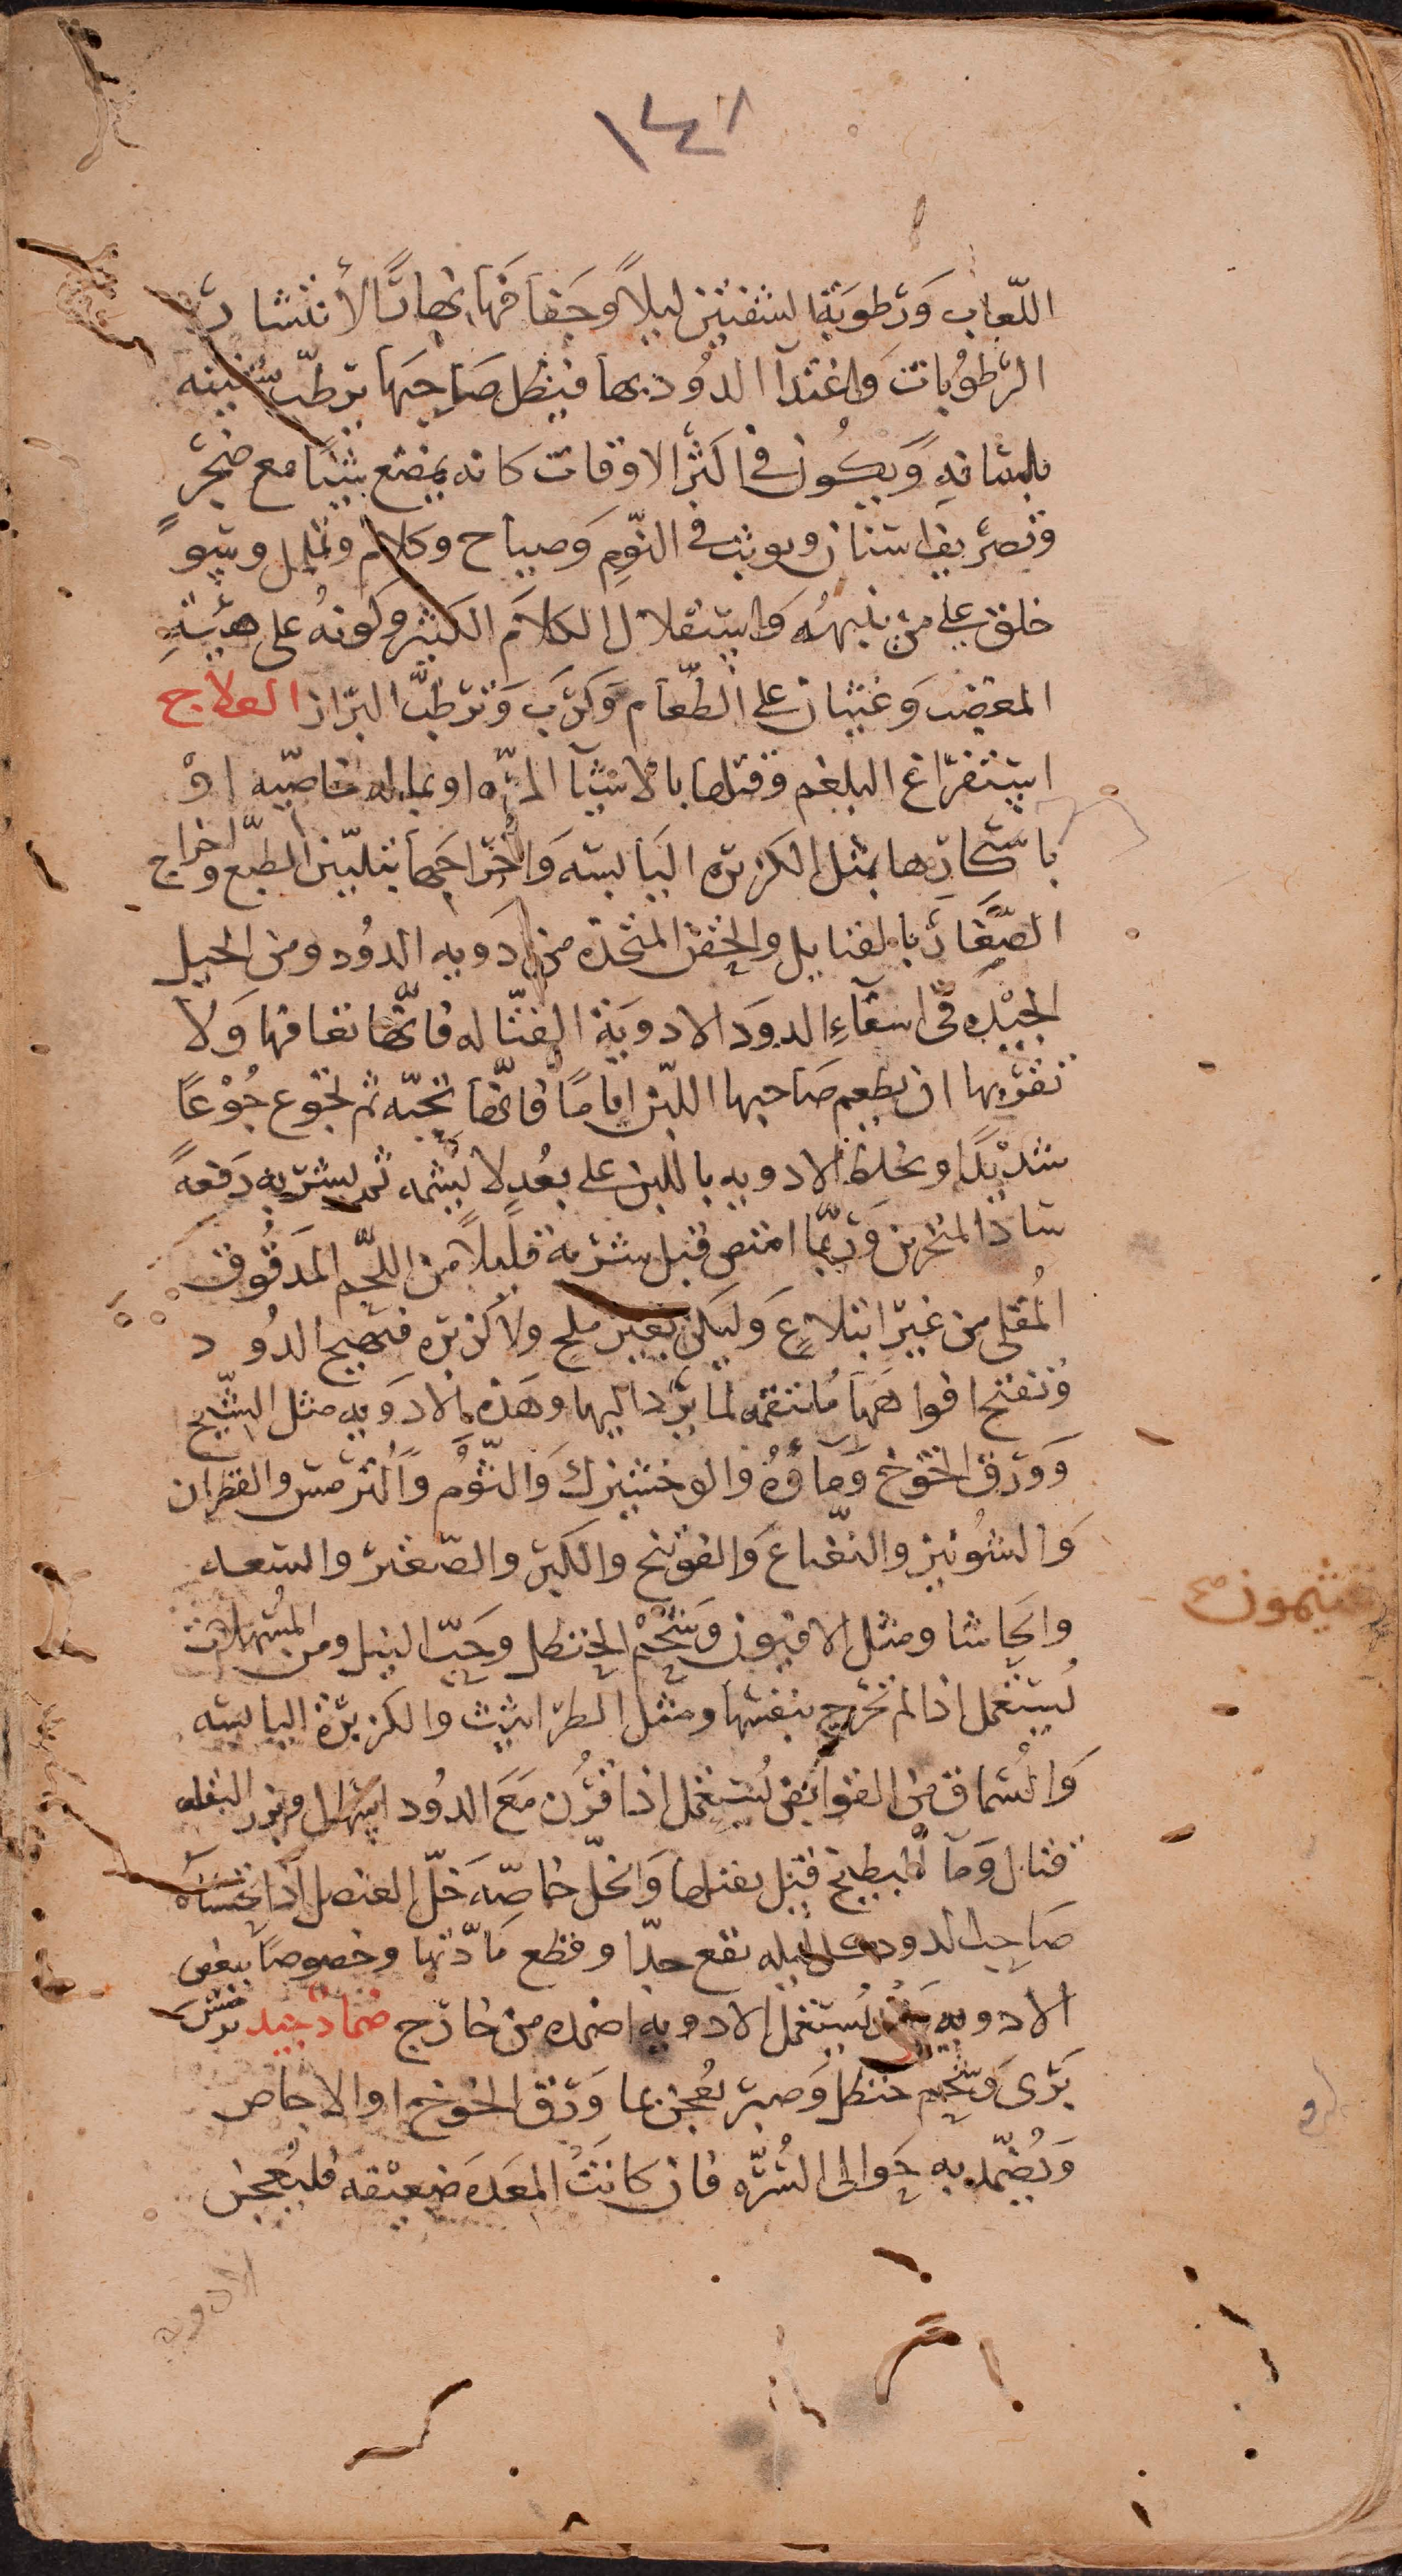 ١٤٨
اللّعاب وَرطوبَة الشفتين ليلاً وجَفافهَا نهارًا لأنتشار
الرّطوُبات وَاغتدآ الدوُد بها فيظل صَاحبهَا يرطّب شفتيه
بلسَانهِ وَيَكوُن في اكثر الاوقات كانه يمضغ شيًا مع ضجَرٍ
وتصَريف اسنان ووثب في النّومِ وَصياح وكلام وتململ وسوُ
خلق على من ينبههُ وَاستثقلال الكلام الكثير وكونهُ على هيئةِ
المغضب وَغثيان على الطّعام وَكرَب وَترطّب البرَاز العلاج
استفراغ البلغم وقتلها بالاشيآ المرّه او بماله خاصّيه اوْ
باسكارها بمثل الكزبره اليَابسَه وَاخراجهَا بتليين الطبّع واخراج
الصّغَار بالفتايل والحقن المتخذه من ادويه الدوُد ومن الحيل
الجيّده فى اسقآءِ الدوَد الادويَة القتّاله فانّها تعافها وَلا
تقربها ان يطعم صَاحبها اللبن ايامًا فانّها تحبّه ثم تجوع جُوْعًا
شديدًا ويخلط الادويه باللبن على بعُدٍ لا يشمه ثم يشربه دَفعهً
سادَّ المنخرين وَربّما امتص قبل شربه قليلاً من اللحّم المَدقوُق
المُقلى من غيرَ ابتلاعٍ وَليكن بغير ملحٍ ولا كزبره فتهيج الدوُد
وُتفتح افواههَا مُلتقمه لما يرَد اليها وهَذه الادَويه مثل الشّيح
وَوَرق الخوخ وَمآؤهُ والوخشيزك وَالثّوُم وَالترمس والقطران
وَالشوُنيز والنعّناع وَالفوتنج والكبَر والصَعتر والسعد
والحَاشا ومثل الافيون وَشحْم الحنظل وحَبّ النيل ومن المسُهلات
يُستعْمل اذا لم تخرج بنفسَها ومثل الطراثيث والكزبرَة اليابسَه
وَالسُماق من القوابض يُستعْمل اذا قرُن مَعَ الدوُد اسهَال وبزر البقله
قتال وَمآ البطيخ قيل يقتلها وَالخلّ خاصّه خَلّ العنصل اذا تحسَاه
صَاحب الدود كل ليله نفع جدًا وقطع مَادّتها وخصوصًا ببعض
الادويه يسُتعْمل الادويه اضمده من خارَج ضماد جيد ترمُس
بَرّى وَشحْم حنظل وَصبر يُعجن بما وَرَق الخوَخ او الاجاص
وَيُضمّد به حَوالى السُرّه فان كانَت المعَده ضعيفه فليُعجن
الادويه
ـثيمون صح